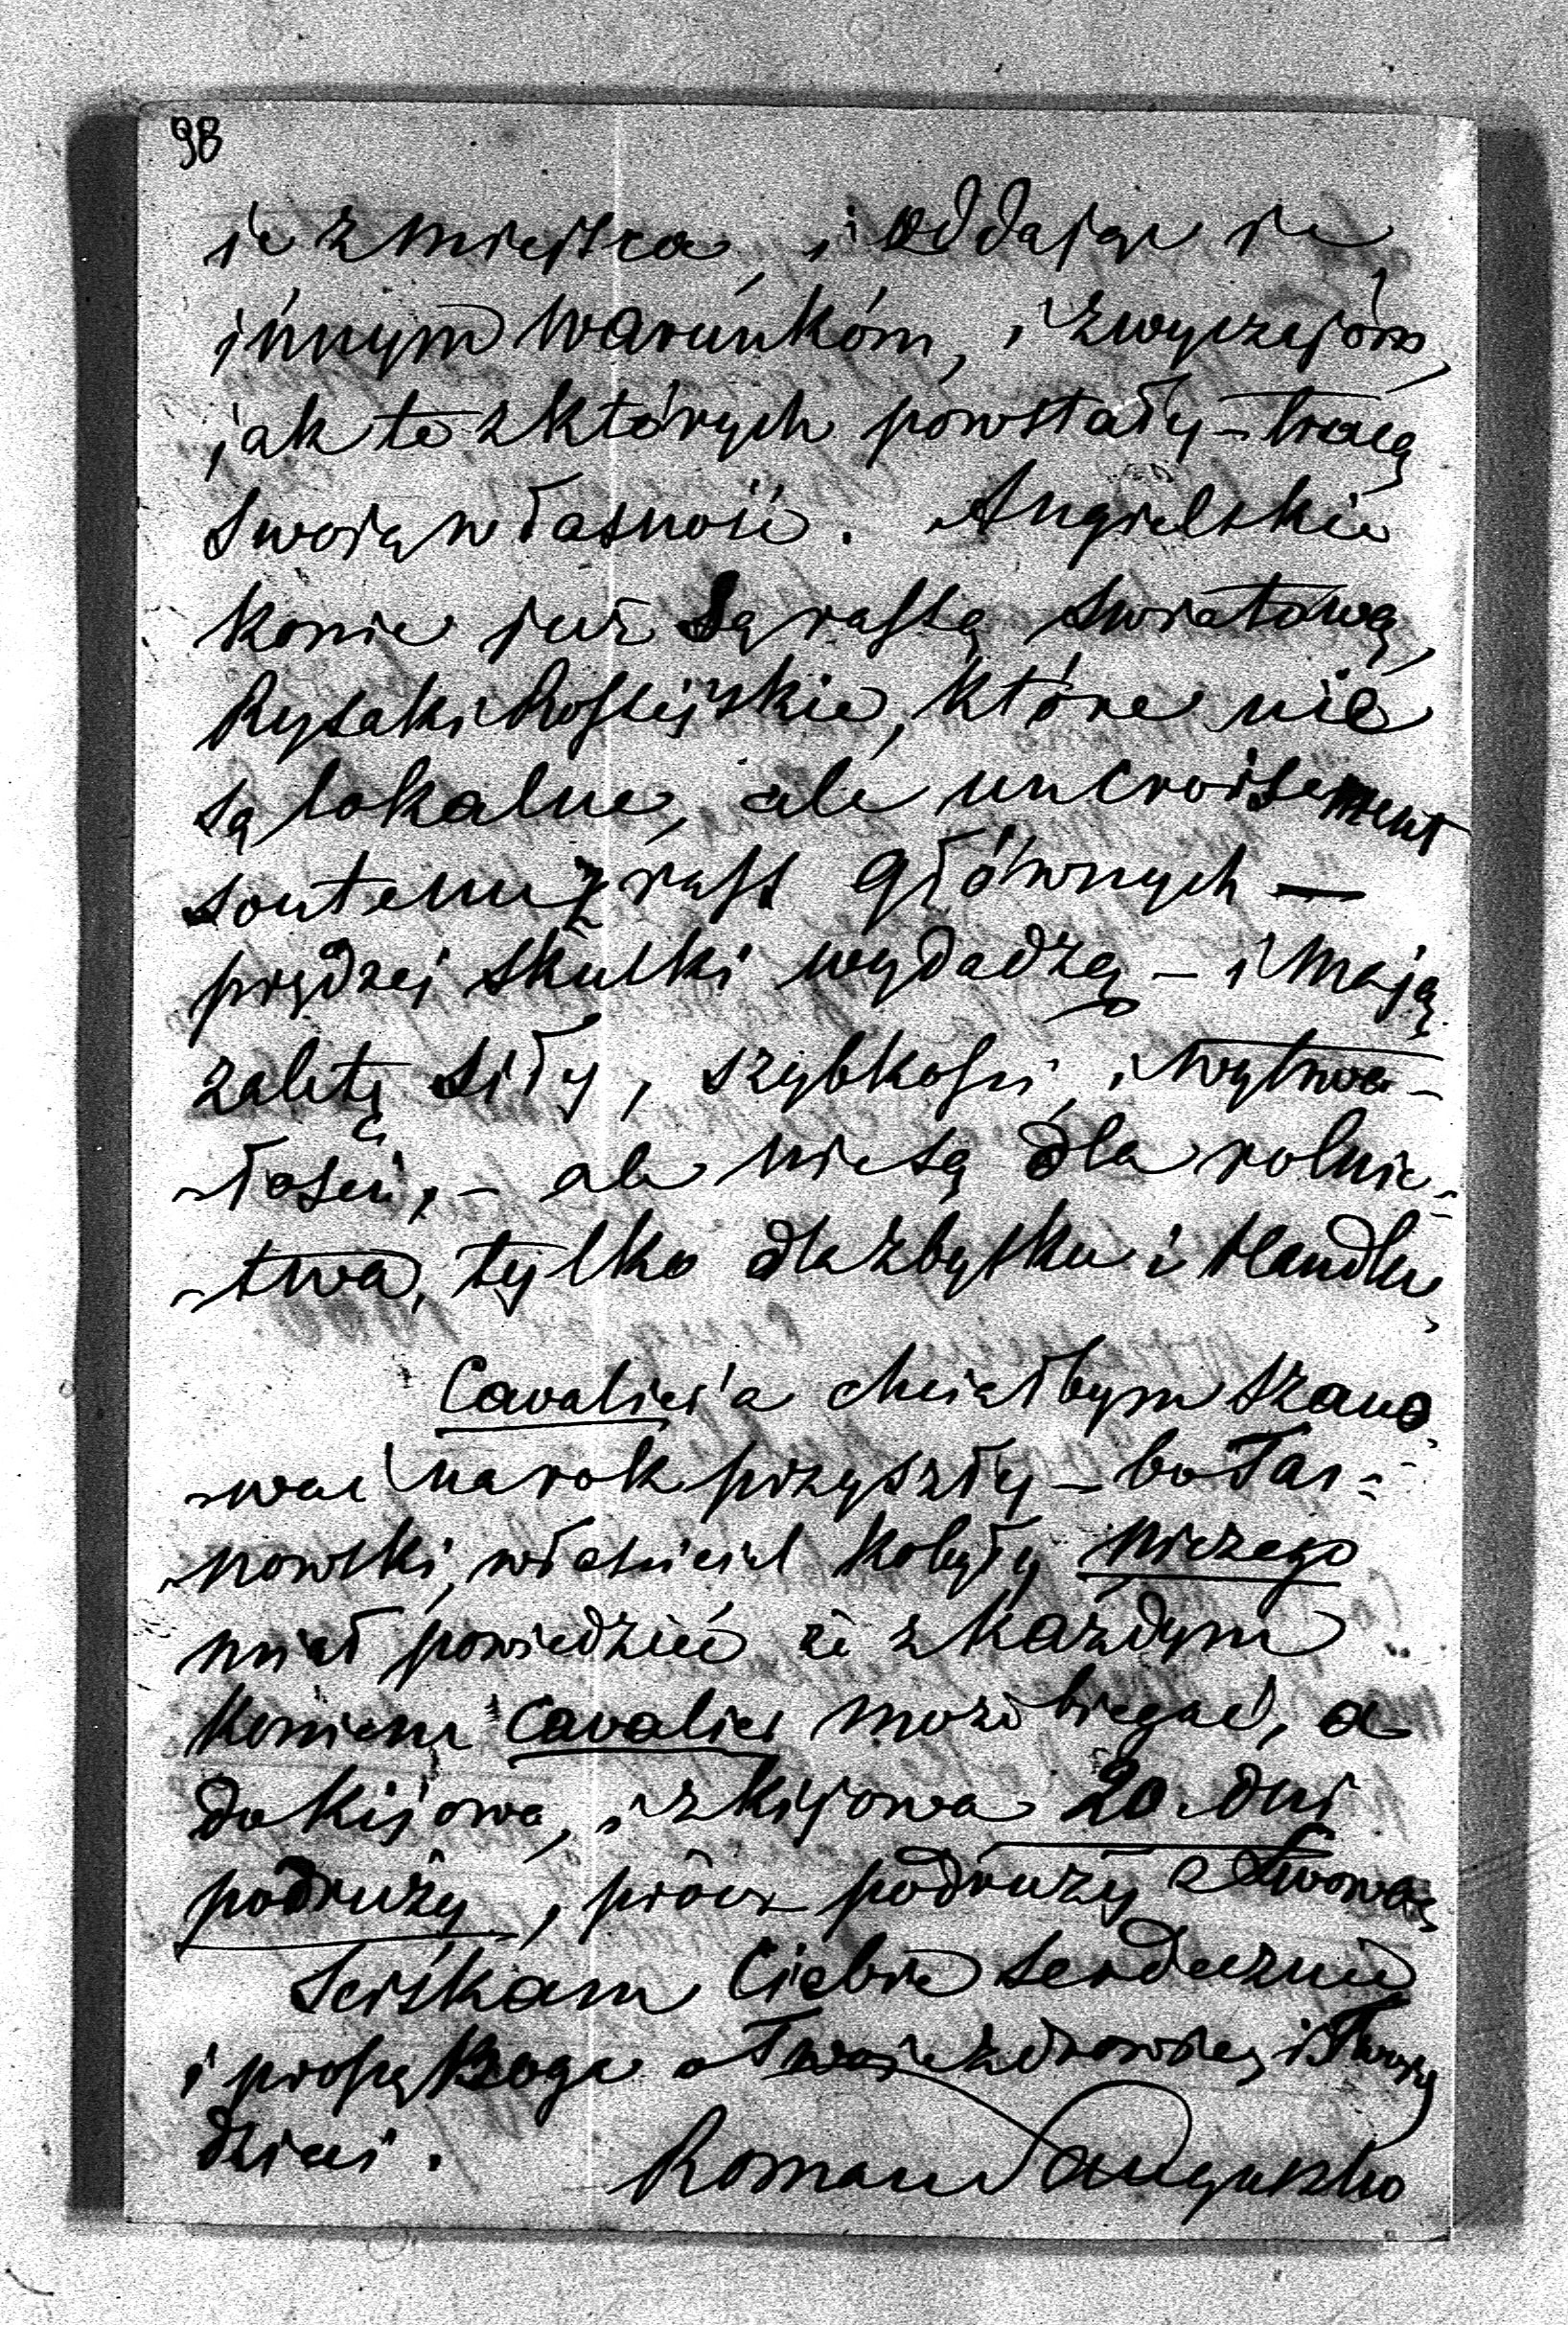 98
je z miejsca, i oddając je
innym warunkóm, i zwyczajóm,
jak te z których powstały – tracą
swoją własność. Angielskie
konie już są rassą swiatową,
Rysaki Rossyjskie, które nie
są lokalne, ale un croisement
soutenu z rass głównych —
prędzej skutki wydadzą – i mają
zaletę siły, szybkości, i wytrwa-
-łości, – ale nie są dla rolnic-
-twa, tylko dla zbytku i Handlu,
Cavalier'a chciałbym szano-
-wać na rok przyszły – bo Tar-
-nowski, właściciel kobyły niczego
miał powiedzieć że z każdym
koniem Cavalier może biegać, a
do Kijowa, i z Kijowa 20. dni
podruży, prócz podruży z Lwowa,
Sciskam Ciebie serdecznie
i proszę Boga o Twoje zdrowie, i Twojej
dzieci.
Roman Sanguszko